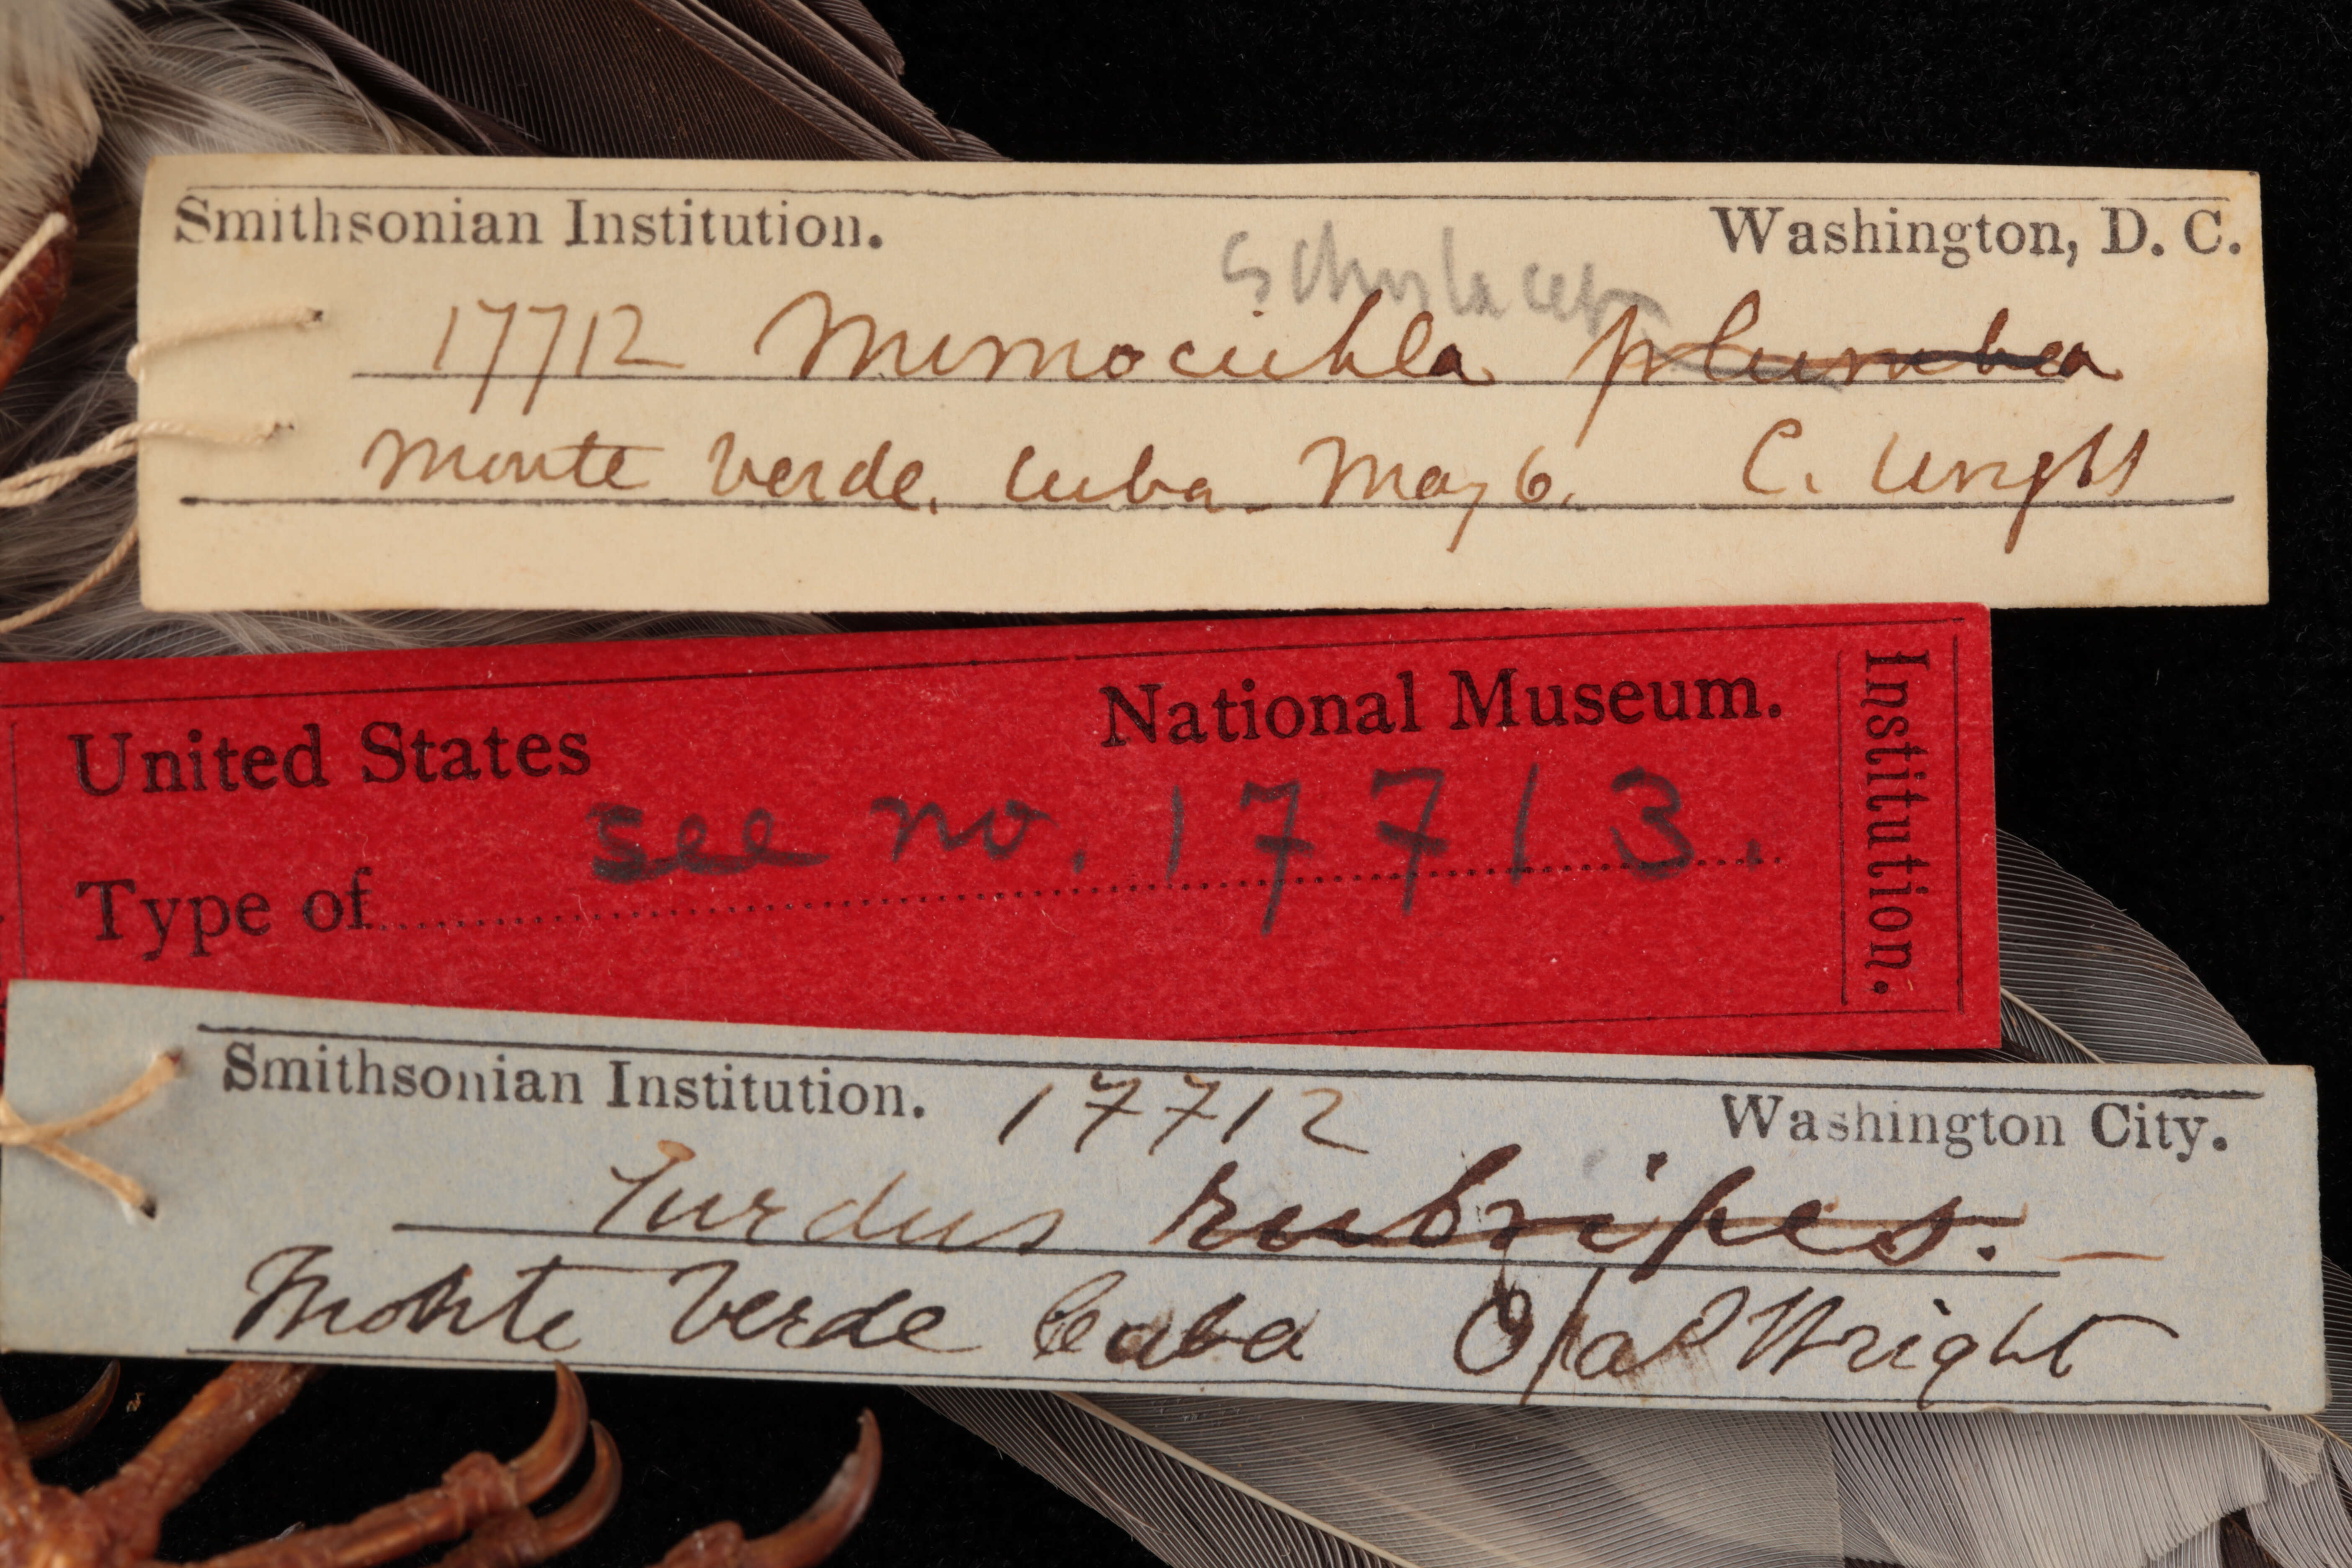 Smithsonian Institution. Washington, D. C.
schistacea
17712 Mimocichla plumbea
Monte Verde. Cuba. May 6. C. Wright
United States National Museum.
see no. 17713.
Type of
Institution.
Smithsonian Institution. 17712 Washington City.
Turdus rubripes. —
Monte Verde Cuba Wright